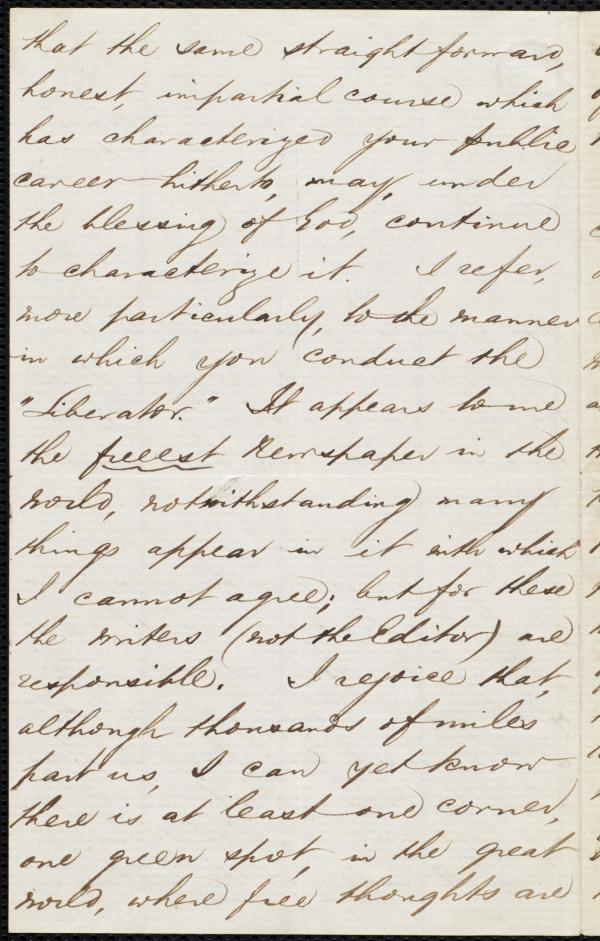 that the same straightforward,
honest, impartial course which
has characterized your public
career hitherto, may, under
the blessing of God, continue
to characterize it. I refer,
more particularly, to the manner
in which you conduct the
"Liberator." It appears to me
the freest Newspaper in the
world, notwithstanding many
things appear in it with which
I cannot agree; but for these
the writers (not the Editor) are
responsible. I rejoice that,
although thousands of miles
part us, I can yet know
there is at least one corner,
one green spot, in the great
world, where free thoughts are